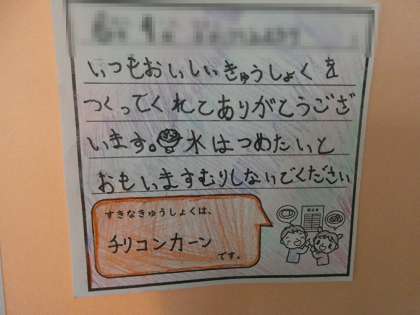 いつもおいしいきゅうしょくを
つくってくれてありがとうござ
います。水はつめたいと
おもいますむりしないでください
すきなきゅうしょくは、
チリコンカーン
です。